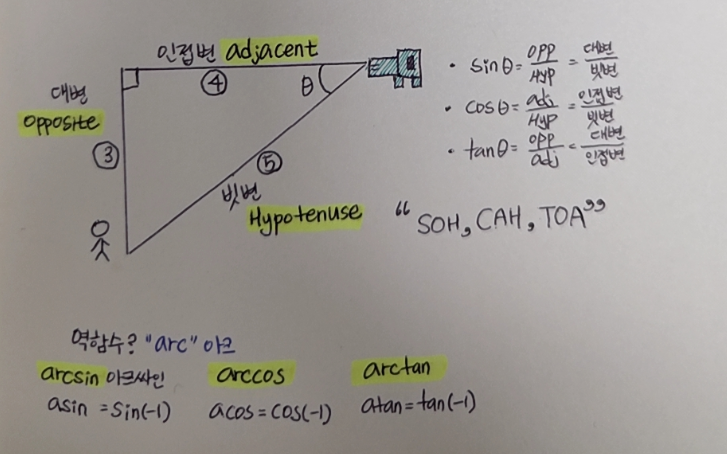 인접변 adjacent
④
θ
대변
opposite
③
⑤
빗변
Hypotenuse
• sinθ = opp/Hyp = 대변/빗변
• cosθ = adj/Hyp = 인접변/빗변
• tanθ = opp/adj = 대변/인접변
“SOH, CAH, TOA”
역함수? "arc" 아크
arcsin 아크싸인 arccos arctan
asin = sin(-1) acos = cos(-1) atan = tan(-1)